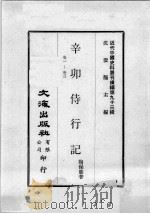 近代中國史料叢刊續編第九十二輯
沈雲龍主編
辛卯侍行記
卷一——卷三
陶保廉著
文海出版社有限公司印行